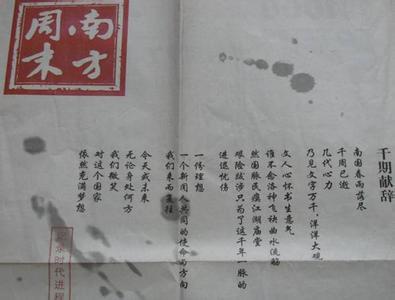 南方
周末
千期献辞
南国春雨落尽
千周已逝
几代心力
乃见文字万千,洋洋大观
文人心怀书生意气
谁不念洛神飞袂曲水流觞
然国脉民瘼江湖庙堂
艰险跋涉只为了这千年一脉的
进退忧伤
一份理想
一个新闻人共同的使命与方向
我们来而复往
今天或未来
无论身处何方
我们微笑
对这个国家
依然充满梦想
记录时代进程